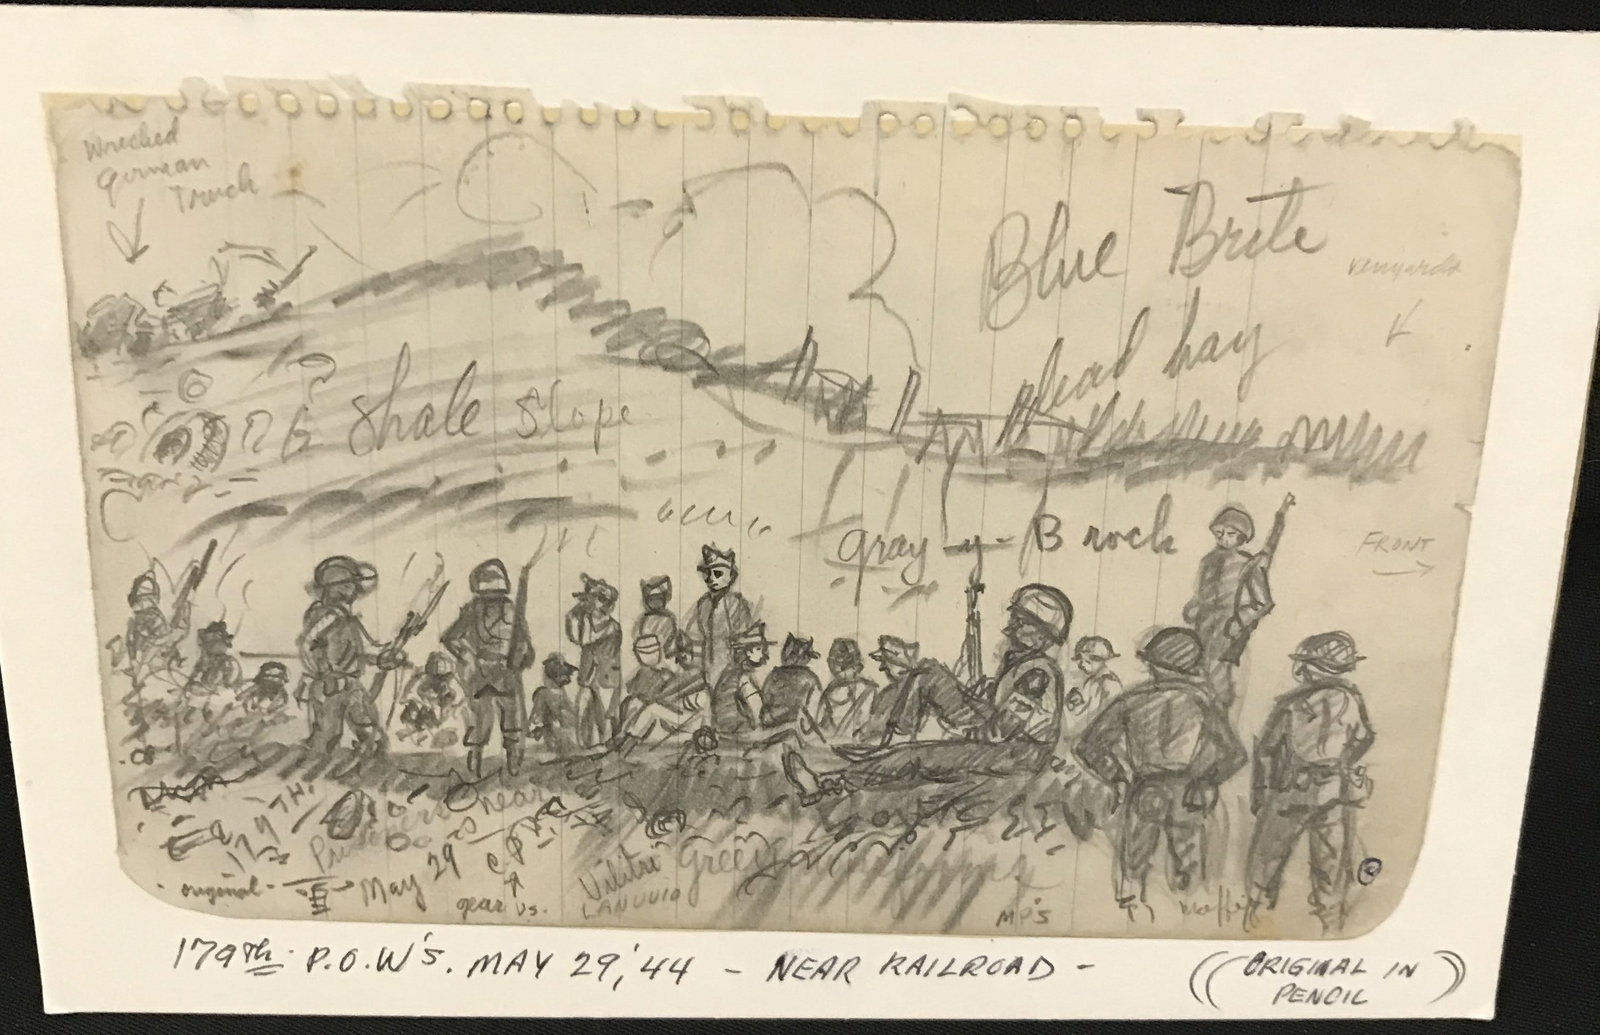 Wrecked
German
Truck
Blue Brite
venyards
dead hay
Shale Slope
gray - y - B rock
FRONT
179TH.
Prisoners near
May 29
C.P.
original
gear vs.
Vilitri Green
LANUVIO
MP'S
179th P.O.W's. MAY 29,'44 - NEAR RAILROAD -
((ORIGINAL IN
PENCIL))